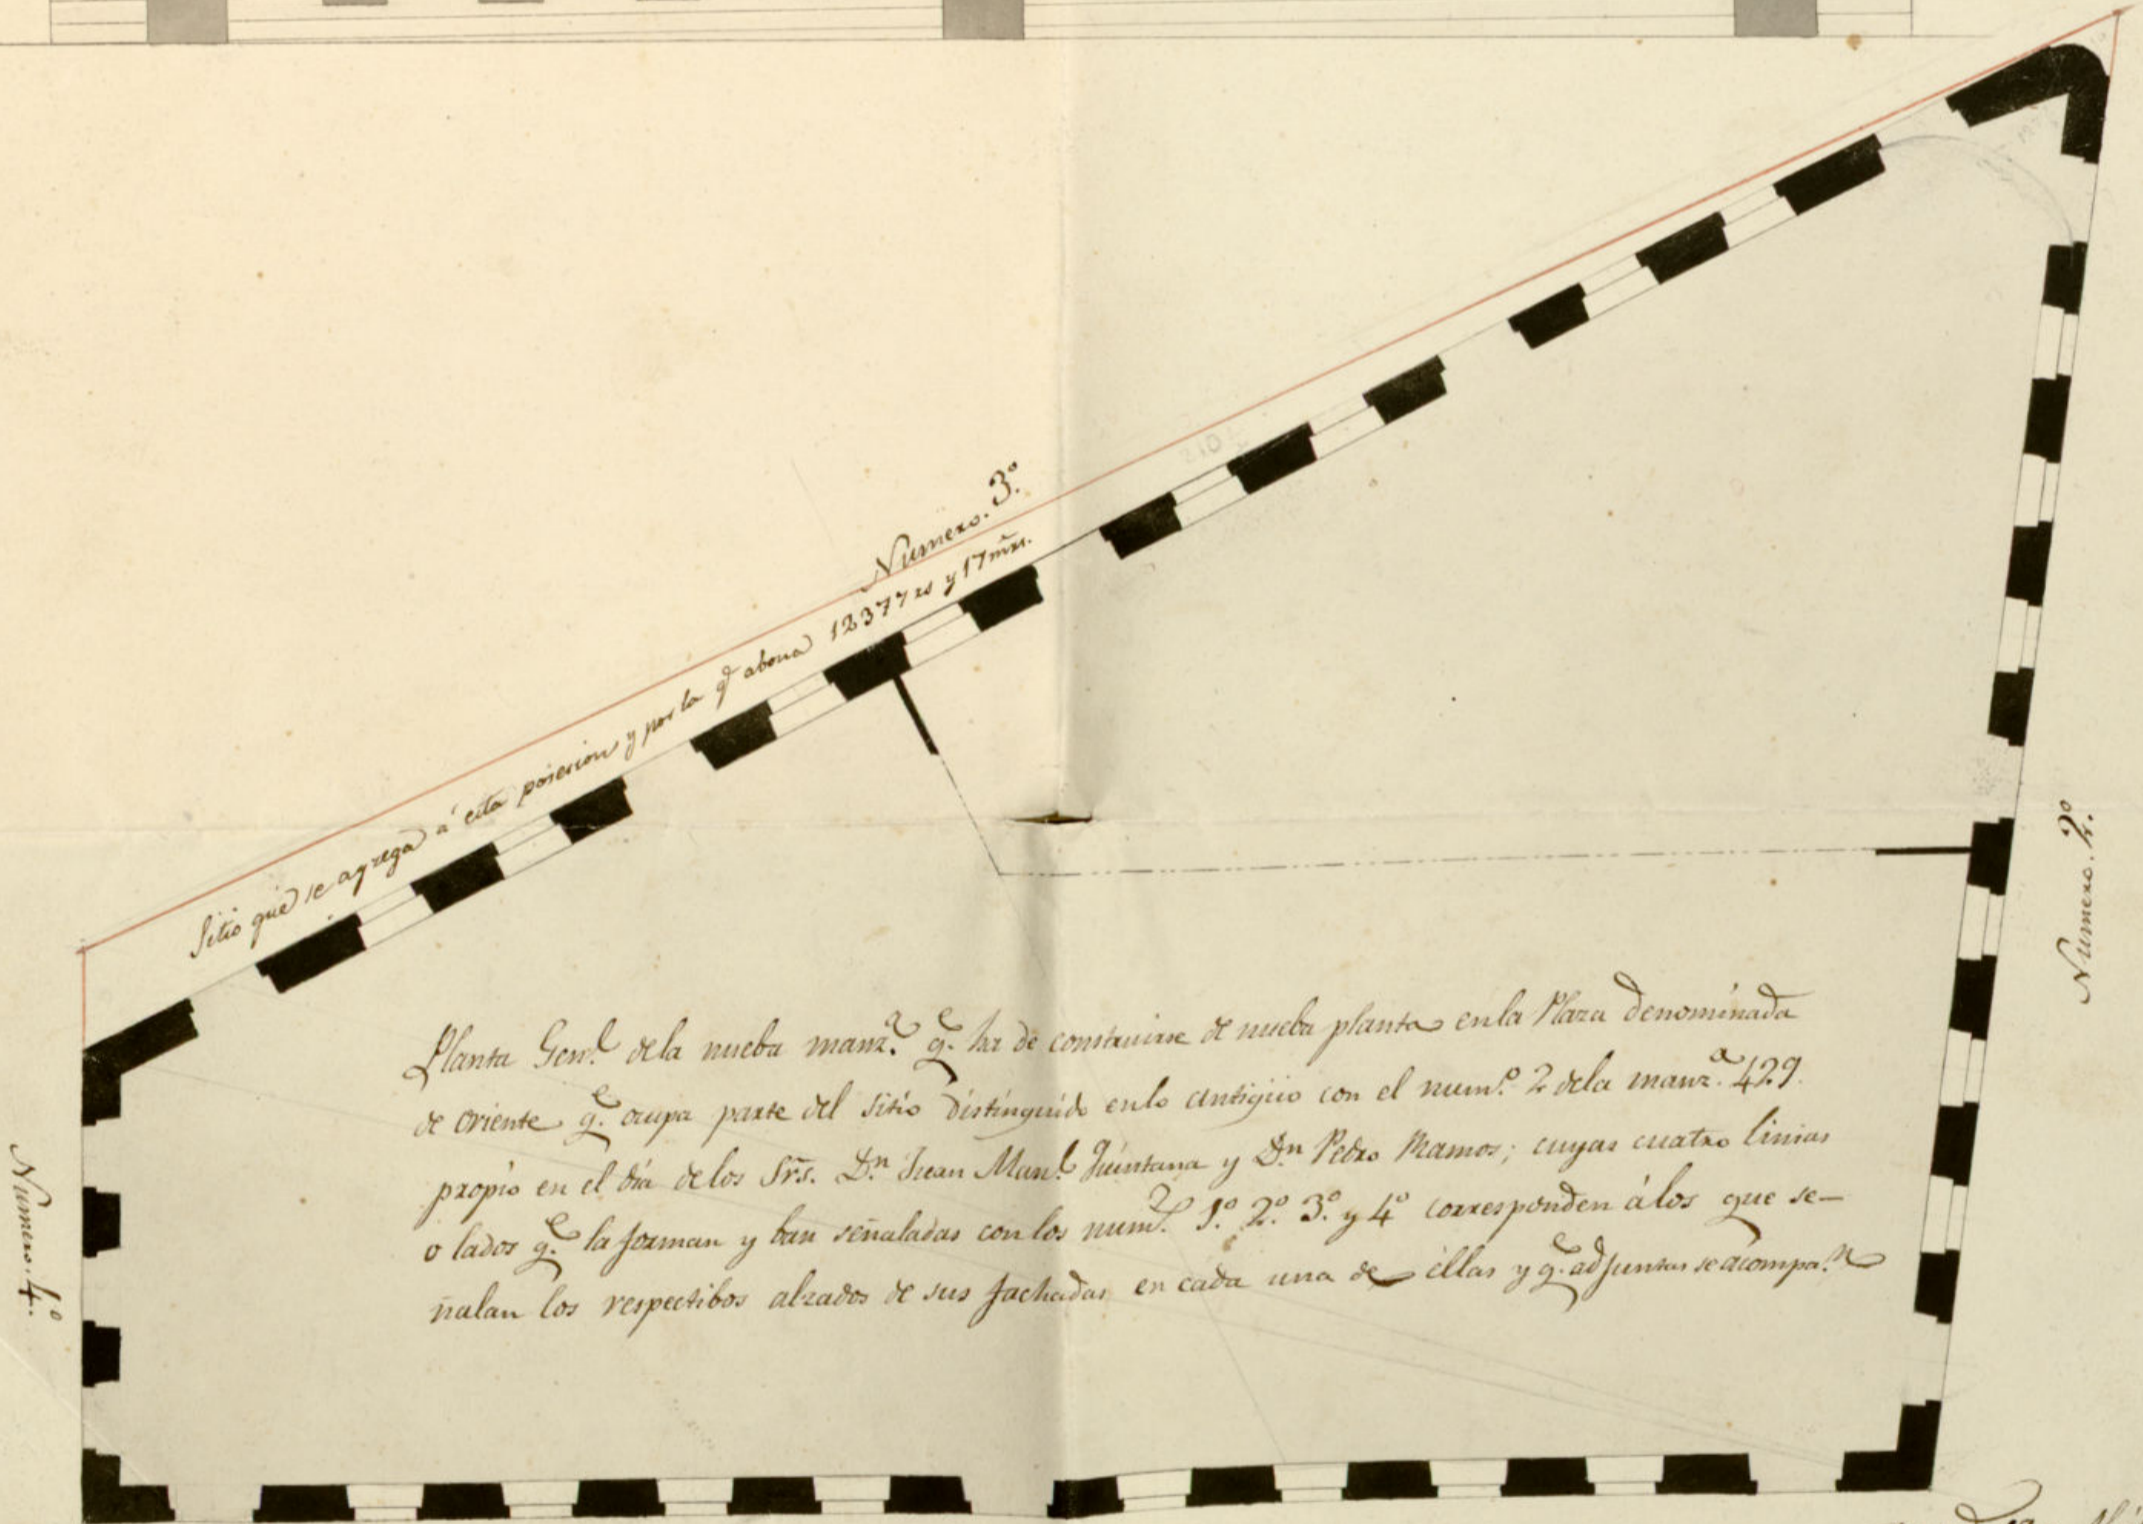 Numero. 3º
Sitio que se agrega á esta posesion y por la q.e abona 12377 rs y 17 mrs.
Numero. 2º
Planta Gen.l dela nueba manz.a q.e ha de construirse de nueba planta enla Plaza denominada
de oriente q.e ocupa parte del sitio distinguido enlo antigüo con el num.o 2 dela manz.a 429.
propio en el dia delos Srs. Dn Juan Man.l Quintana y Dn Pedro Ramos; cuyas cuatro linias
o lados q.e la forman y ban señaladas con los num.s 1º. 2º. 3º. y 4º corresponden álos que se-
ñalan los respectibos alzados de sus fachadas en cada una de éllas y q.e adjuntas se acompa.n
Numero. 4º.